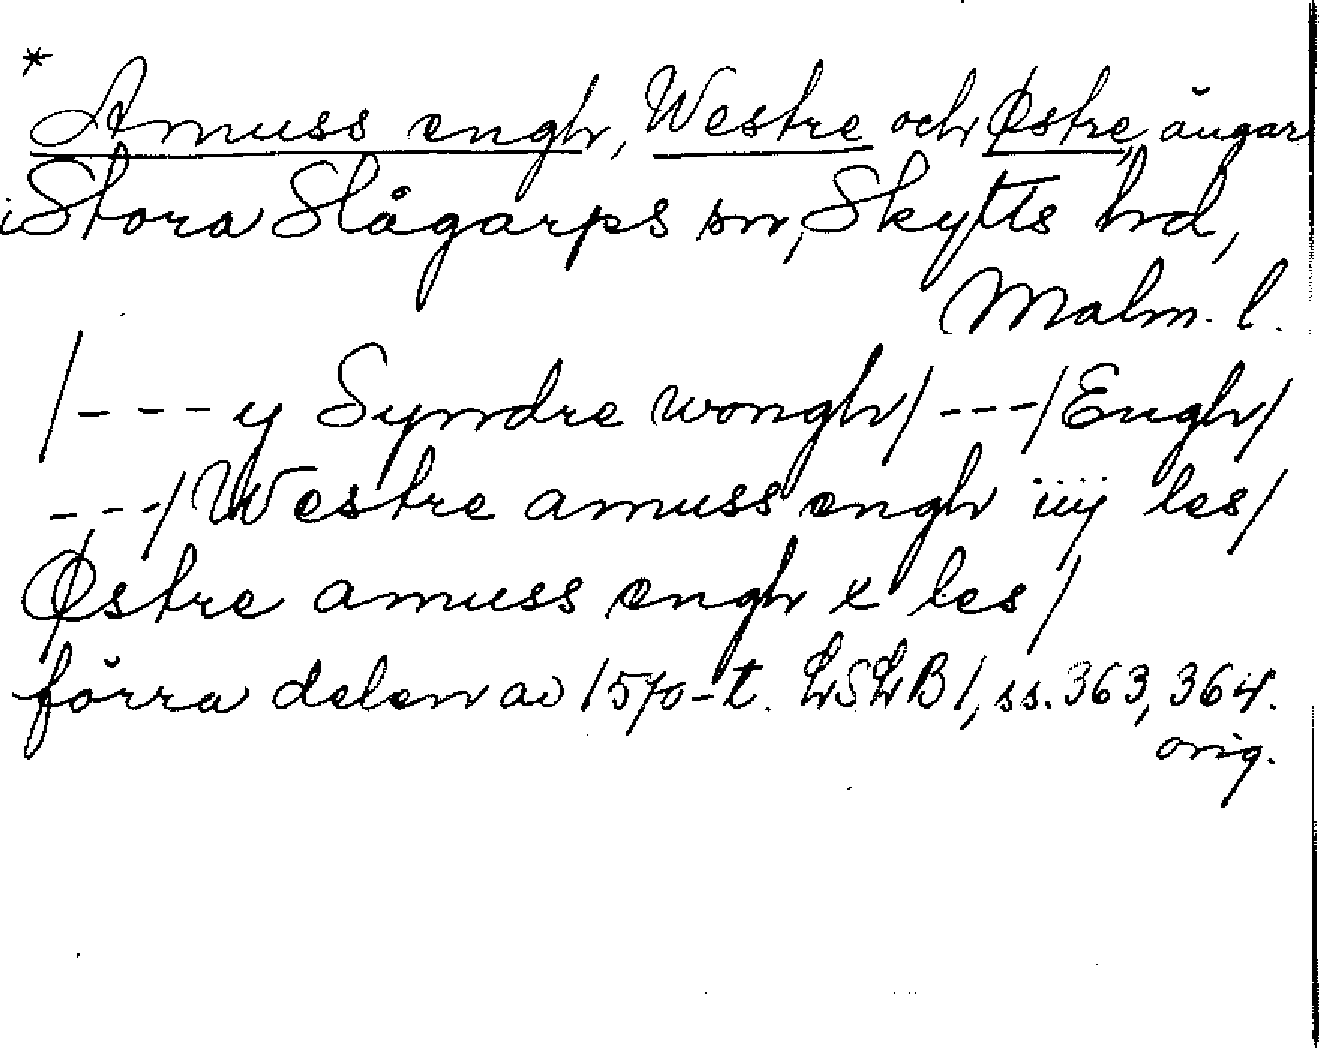 * Amuss engh, Westre och Østre, ängar
i Stora Slågarps sn, Skytts hd,
Malm. l.
/ - - - y Syndre wongh / - - - / Engh /
- - - / Westre amuss engh iiij les /
Østre amuss engh x les /
förra delen av 1570-t. LSLB 1, ss. 363, 364.
orig.